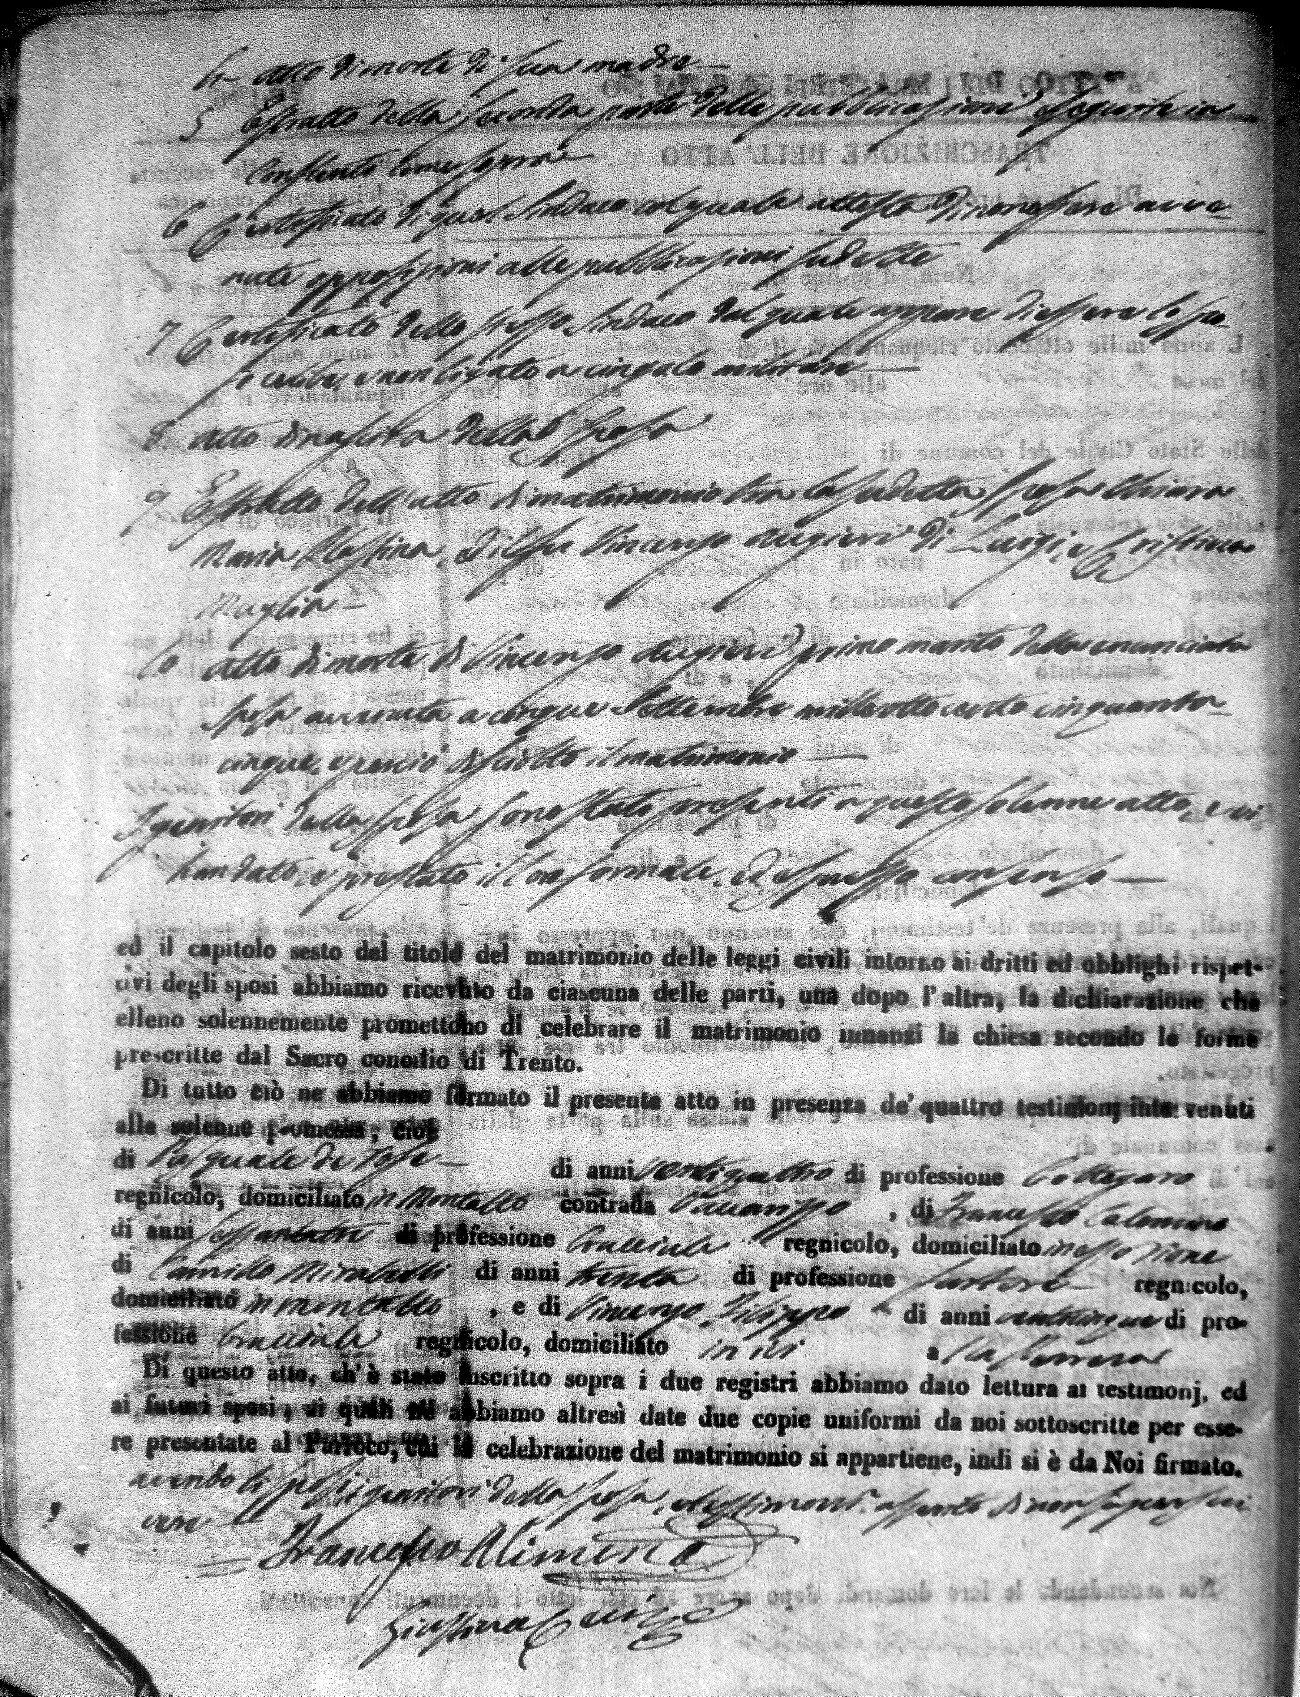 atto di morte di sua madre
5 Estratto della seconda parte delle pubblicazioni eseguite in
6 Certificato di quel Sindaco col quale attesta di non essere avve-
nute opposizioni alle pubblicazioni sudette
7 Certificato dello stesso Sindaco dal quale appare di essere lo spo-
so celibe, e non ligato a cingolo militare
8. atto di nascita della sposa
9 Estratto dell'atto di matrimonio tra la sudetta sposa Chiara
Maria Messina, ed il fu Vincenzo Augieri di Luigi, e Cristina
Maglia
10 atto di morte di Vincenzo Augieri primo marito della enunciata
sposa avvenuta a cinque Settembre milleottocento cinquanta-
cinque, e perciò disciolto il matrimonio
I genitori della sposa sono stati presenti a questo solenne atto, e vi
han dato, e prestato il loro formale, ed espresso consenso
ed il capitolo sesto del titolo del matrimonio delle leggi civili intorno ai dritti ed obblighi rispet-
tivi degli sposi abbiamo ricevuto da ciascuna delle parti, una dopo l'altra, la dichiarazione che
elleno solennemente promettono di celebrare il matrimonio innanzi la chiesa secondo le forme
prescritte dal Sacro concilio di Trento.
Di tutto ciò ne abbiamo formato il presente atto in presenza de' quattro testimonj intervenuti
alla solenne promessa, cioè
di Pasquale di Rose di anni ventiquattro di professione bottegaro
regnicolo, domiciliato in Montalto contrada , di Francesco
di anni sessantatre di professione bracciale regnicolo, domiciliato in esso rione
di Camillo Mirabelli di anni trenta di professione sartore regnicolo,
domiciliato in Montalto , e di Vincenzo Filippo di anni venticinque di pro-
fessione bracciale regnicolo, domiciliato in ivi
Di questo atto, ch'è stato inscritto sopra i due registri abbiamo dato lettura ai testimonj, ed
ai futuri sposi, ai quali ne abbiamo altresì date due copie uniformi da noi sottoscritte per esse-
re presentate al Parroco, cui la celebrazione del matrimonio si appartiene, indi si è da Noi firmato.
avendo li sposi, i genitori della sposa, e testimoni asserito di non saper scri-
vere
Francesco Alimena